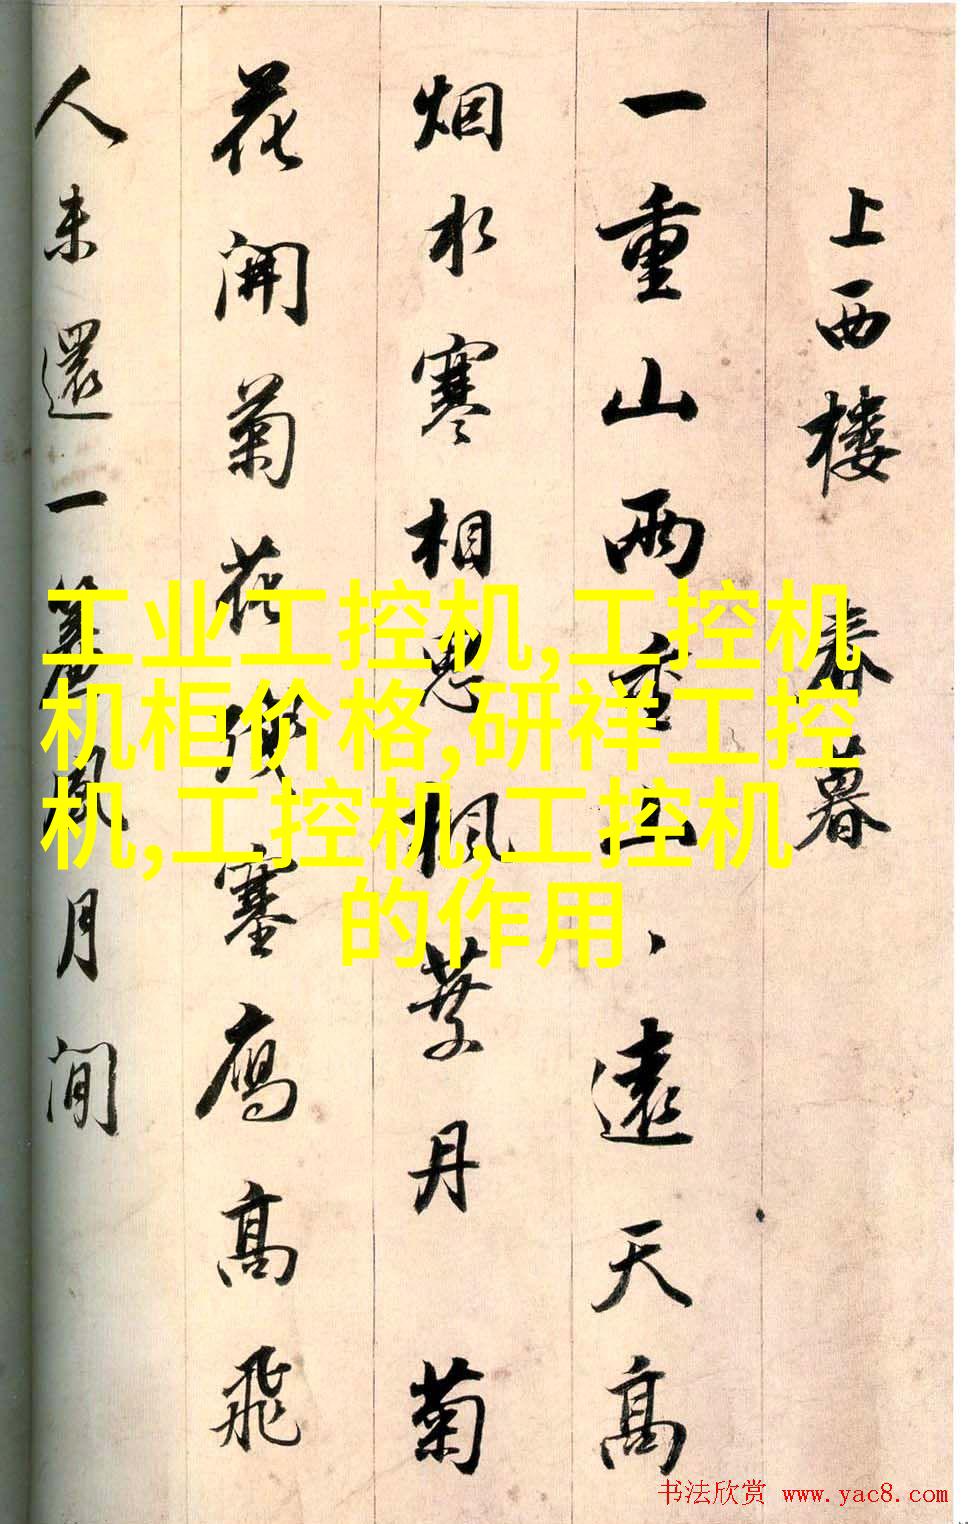 上西楼 春暮
一重山两重山、遠天高
烟水寒相思枫葉丹 菊
花開菊花残塞鴈高飛
人未還一簾風月閒
工业工控机,工控机
机柜价格,研祥工控
机,工控机,工控机
的作用
书法欣赏 www.yac8.com